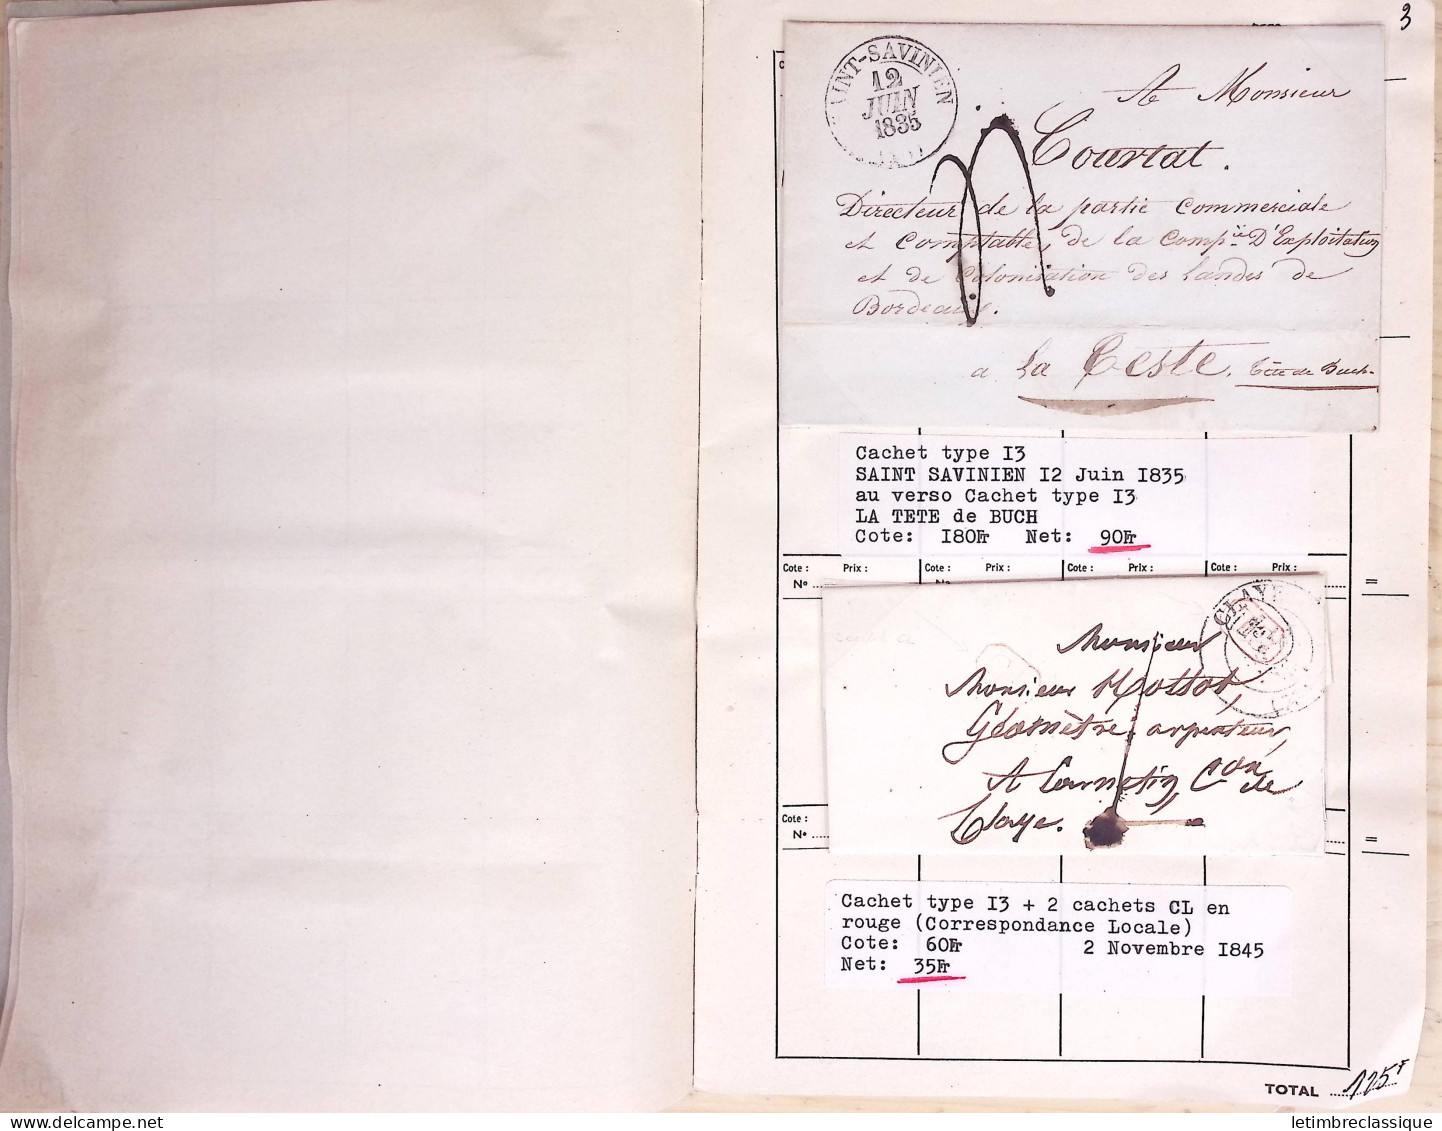 3
AINT-SAVINIEN
12
JUIN
1835
A Monsieur
Courtat.
Directeur de la partie Commerciale
et Comptable, de la Comp.ie D'Exploitation
et de Colonisation des Landes de
Bordeaux.
a La Teste. Tête de Buch.
Cachet type I3
SAINT SAVINIEN I2 Juin I835
au verso Cachet type I3
LA TETE de BUCH
Cote: I80Fr Net: 90Fr
Cote : Prix : Cote : Prix : Cote : Prix : Cote : Prix :
No
=
CLAYE
Monsieur
Monsieur Mottot,
Géomètre arpenteur,
A Cournetin, Con de
Claye.
Cote :
No
=
Cachet type I3 + 2 cachets CL en
rouge (Correspondance Locale)
Cote: 60Fr 2 Novembre I845
Net: 35Fr
TOTAL 125F
letimbreclassique